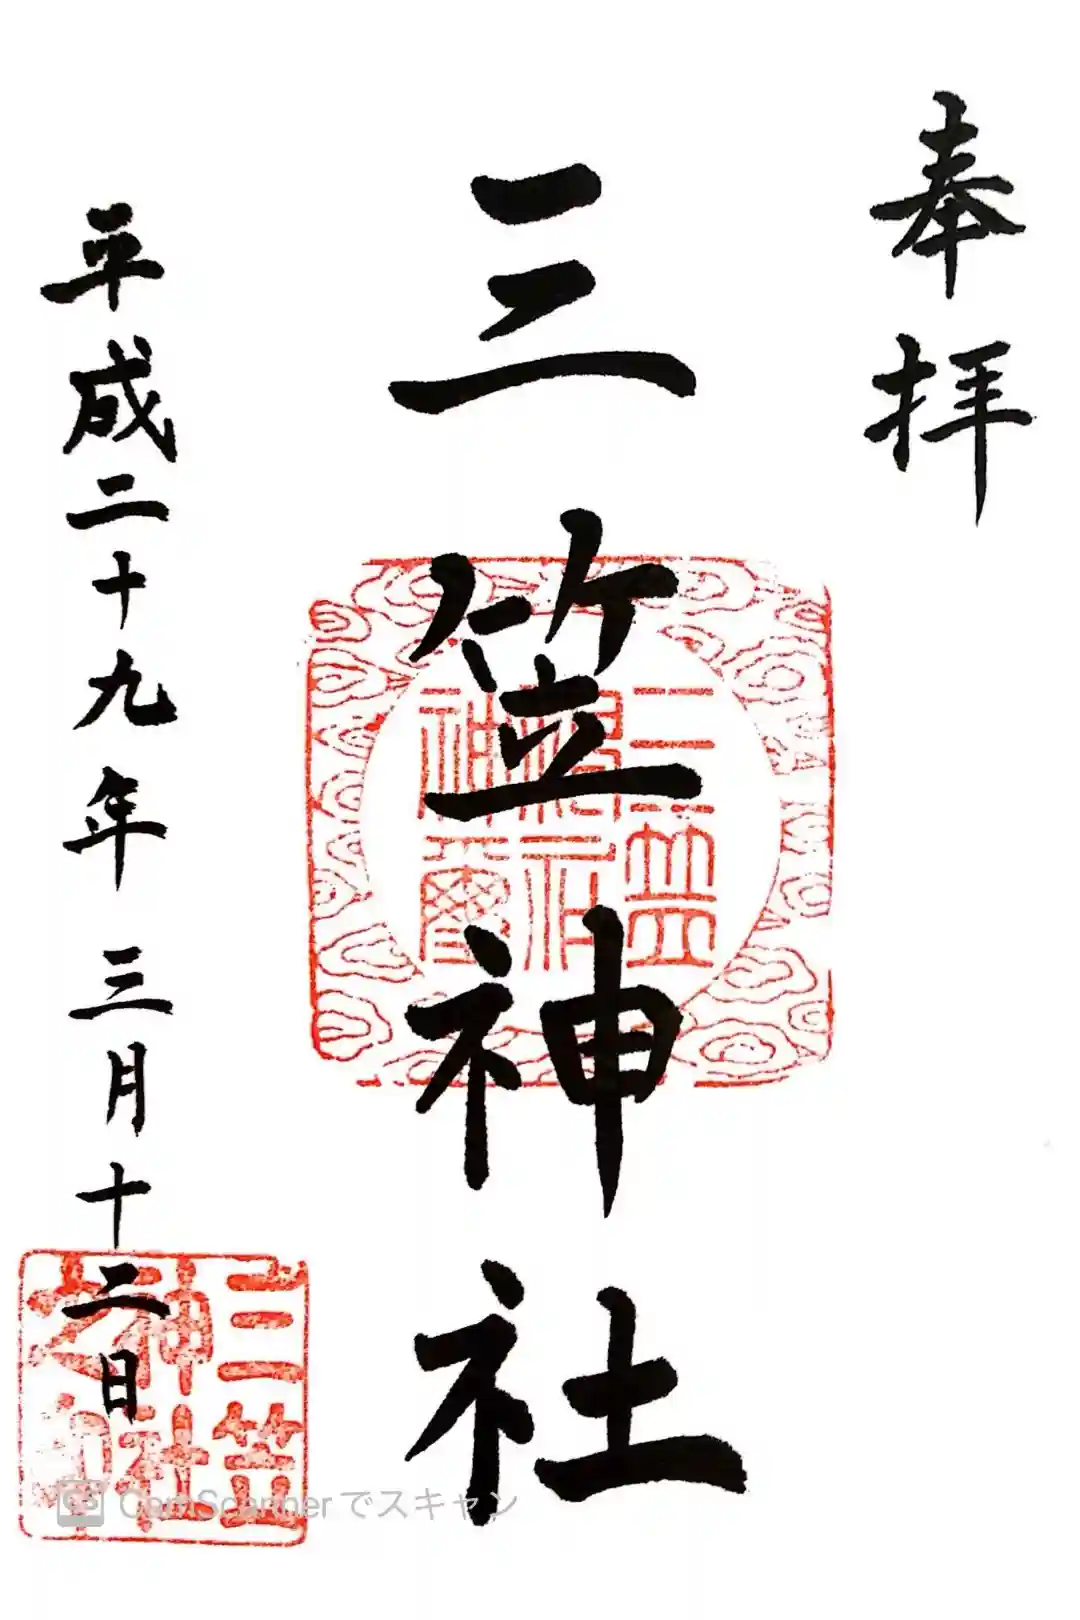 奉拝
三笠神社
平成二十九年三月十二日
三笠
神社
三笠
神社
之印
CamScannerでスキャン